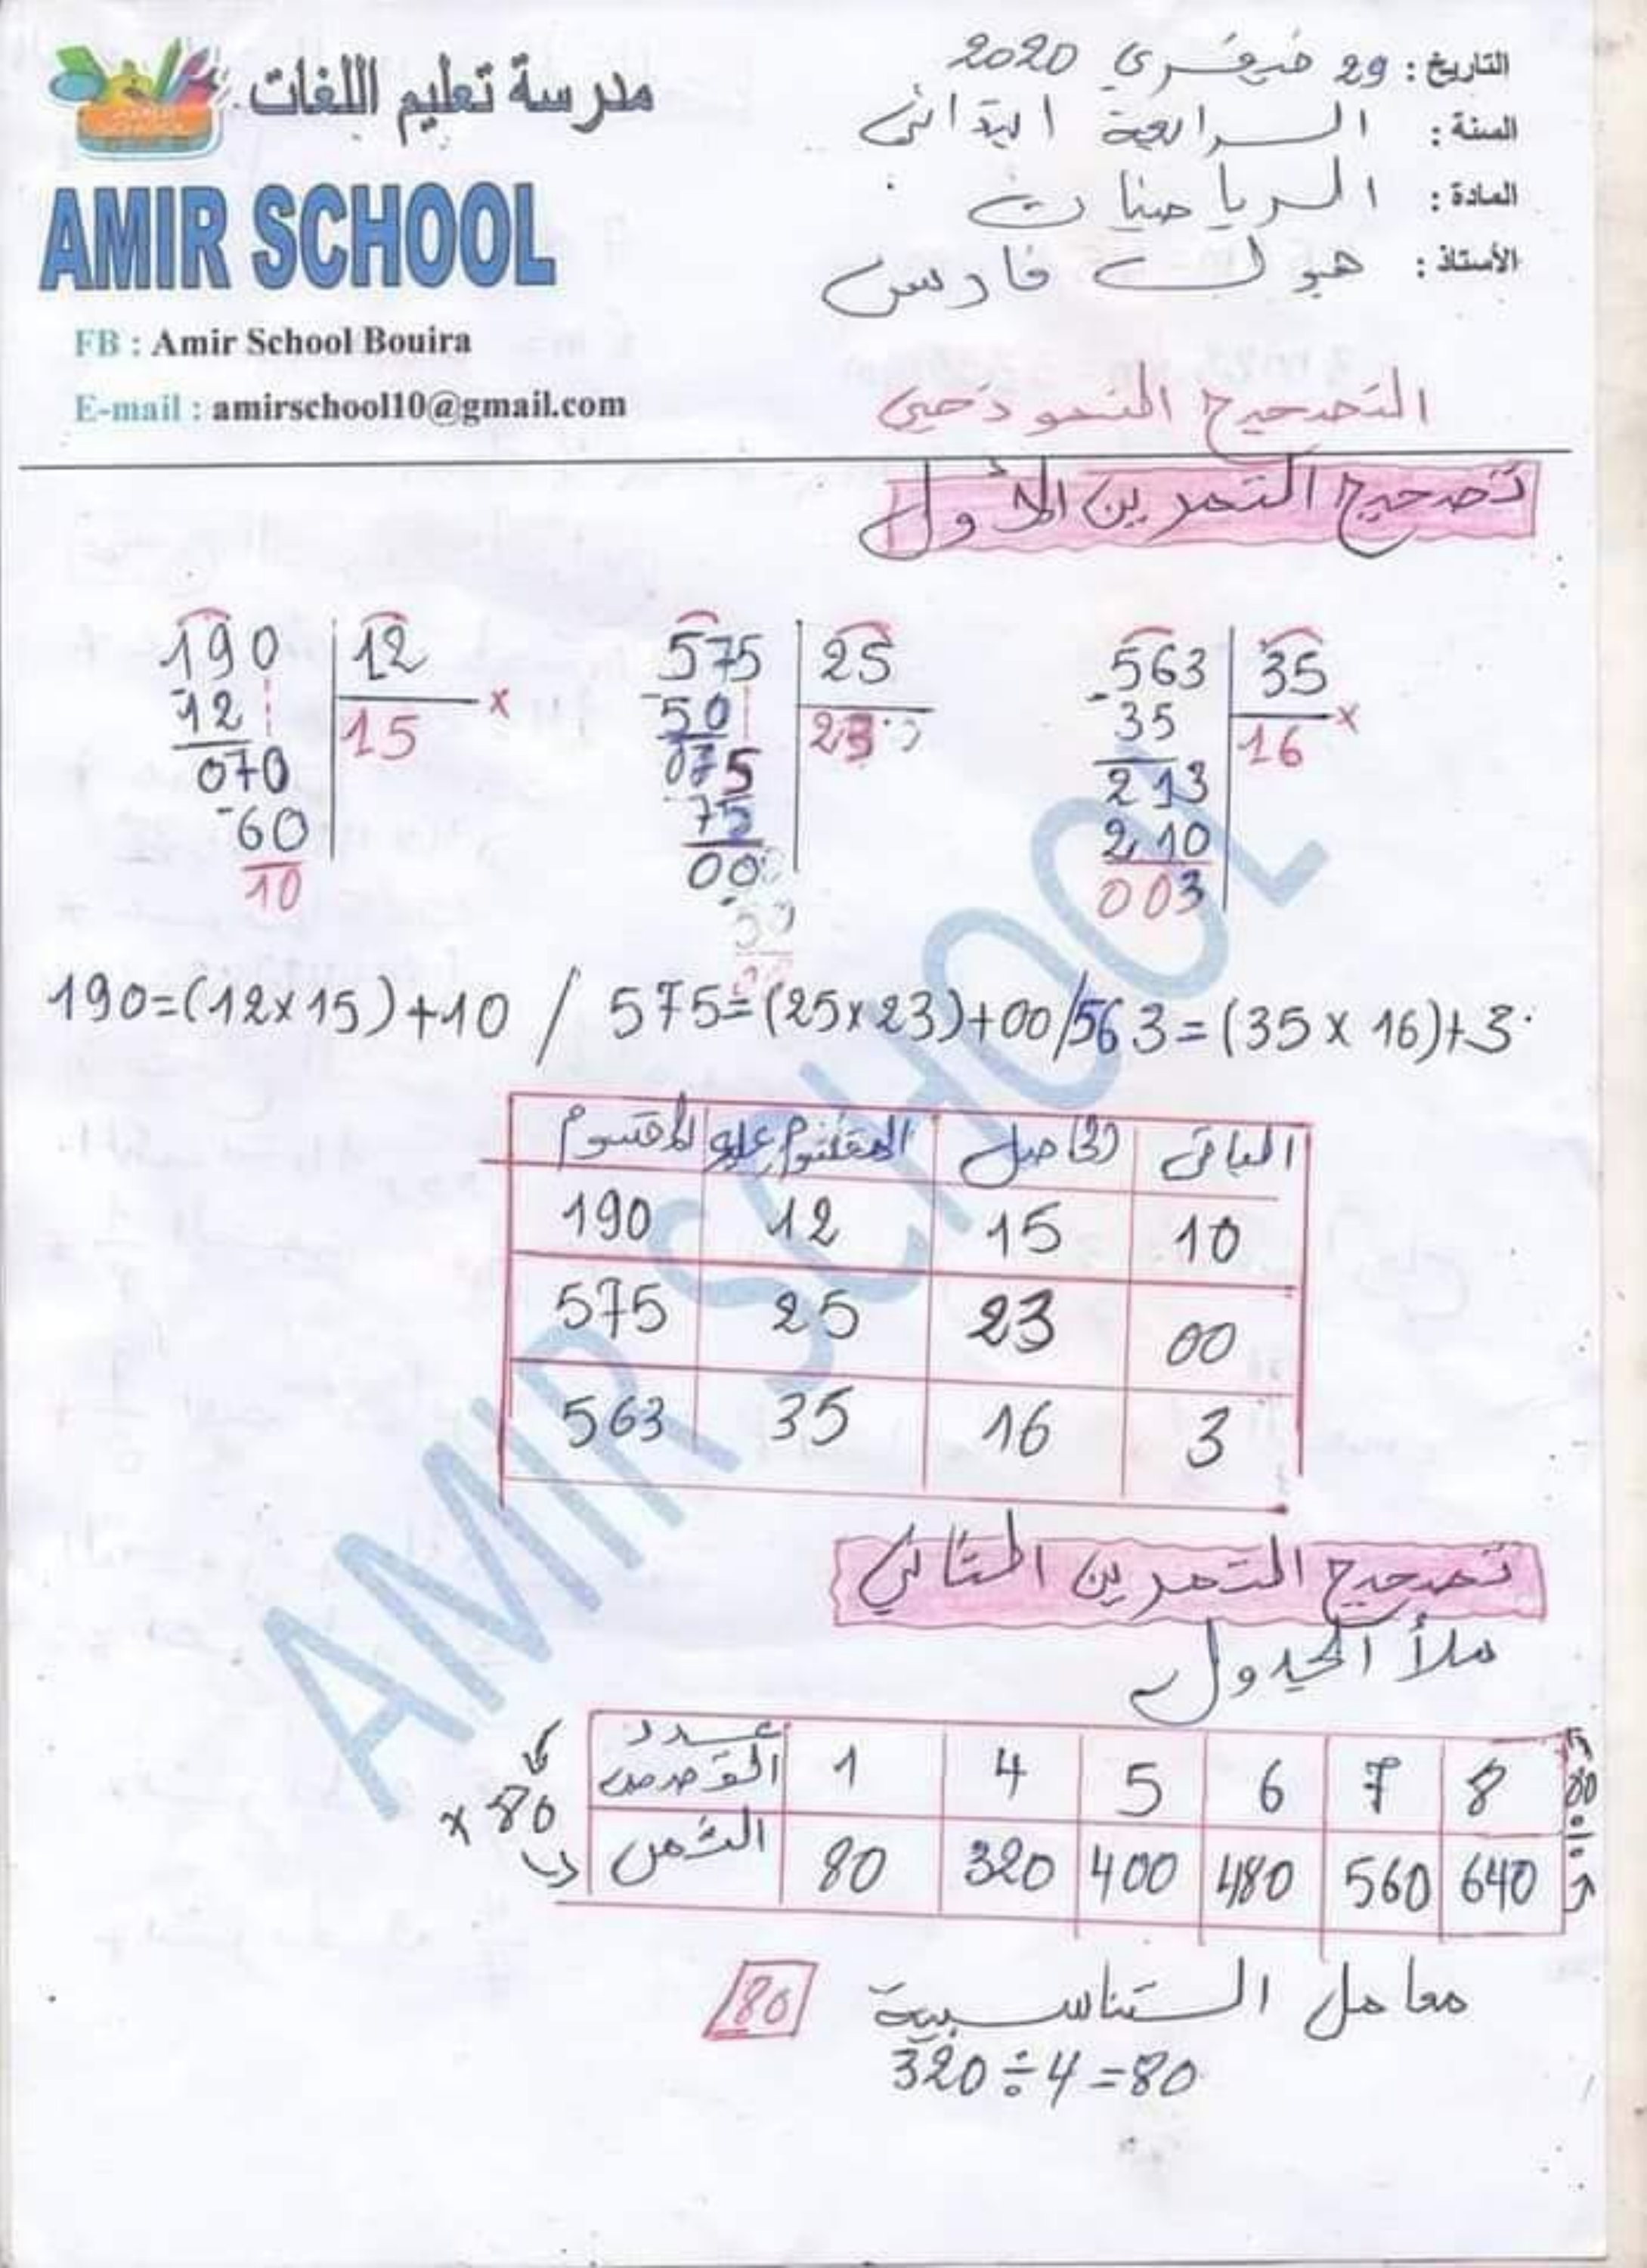 مدرسة تعليم اللغات
AMIR SCHOOL
FB : Amir School Bouira
E-mail : amirschool10@gmail.com
التاريخ : 29 فيفري 2020
السنة : الرابعة ابتدائي
المادة : الرياضيات
الأستاذ : فارس
التصحيح النموذجي
تصحيح التمرين الأول
190 12
- 12 15 ×
070
- 60
10
575 25
- 50 23
075
75
00
563 35
- 35 16 ×
213
210
003
190=(12×15)+10 / 575=(25×23)+00/563=(35×16)+3
المقسوم المقسوم عليه الحاصل الباقي
190 12 15 10
575 25 23 00
563 35 16 3
تصحيح التمرين الثاني
ملأ الجدول
عدد القصص 1 4 5 6 7 8
الثمن 80 320 400 480 560 640
× 80
÷ 80
معامل التناسبية 80
320÷4=80
AMIR SCHOOL